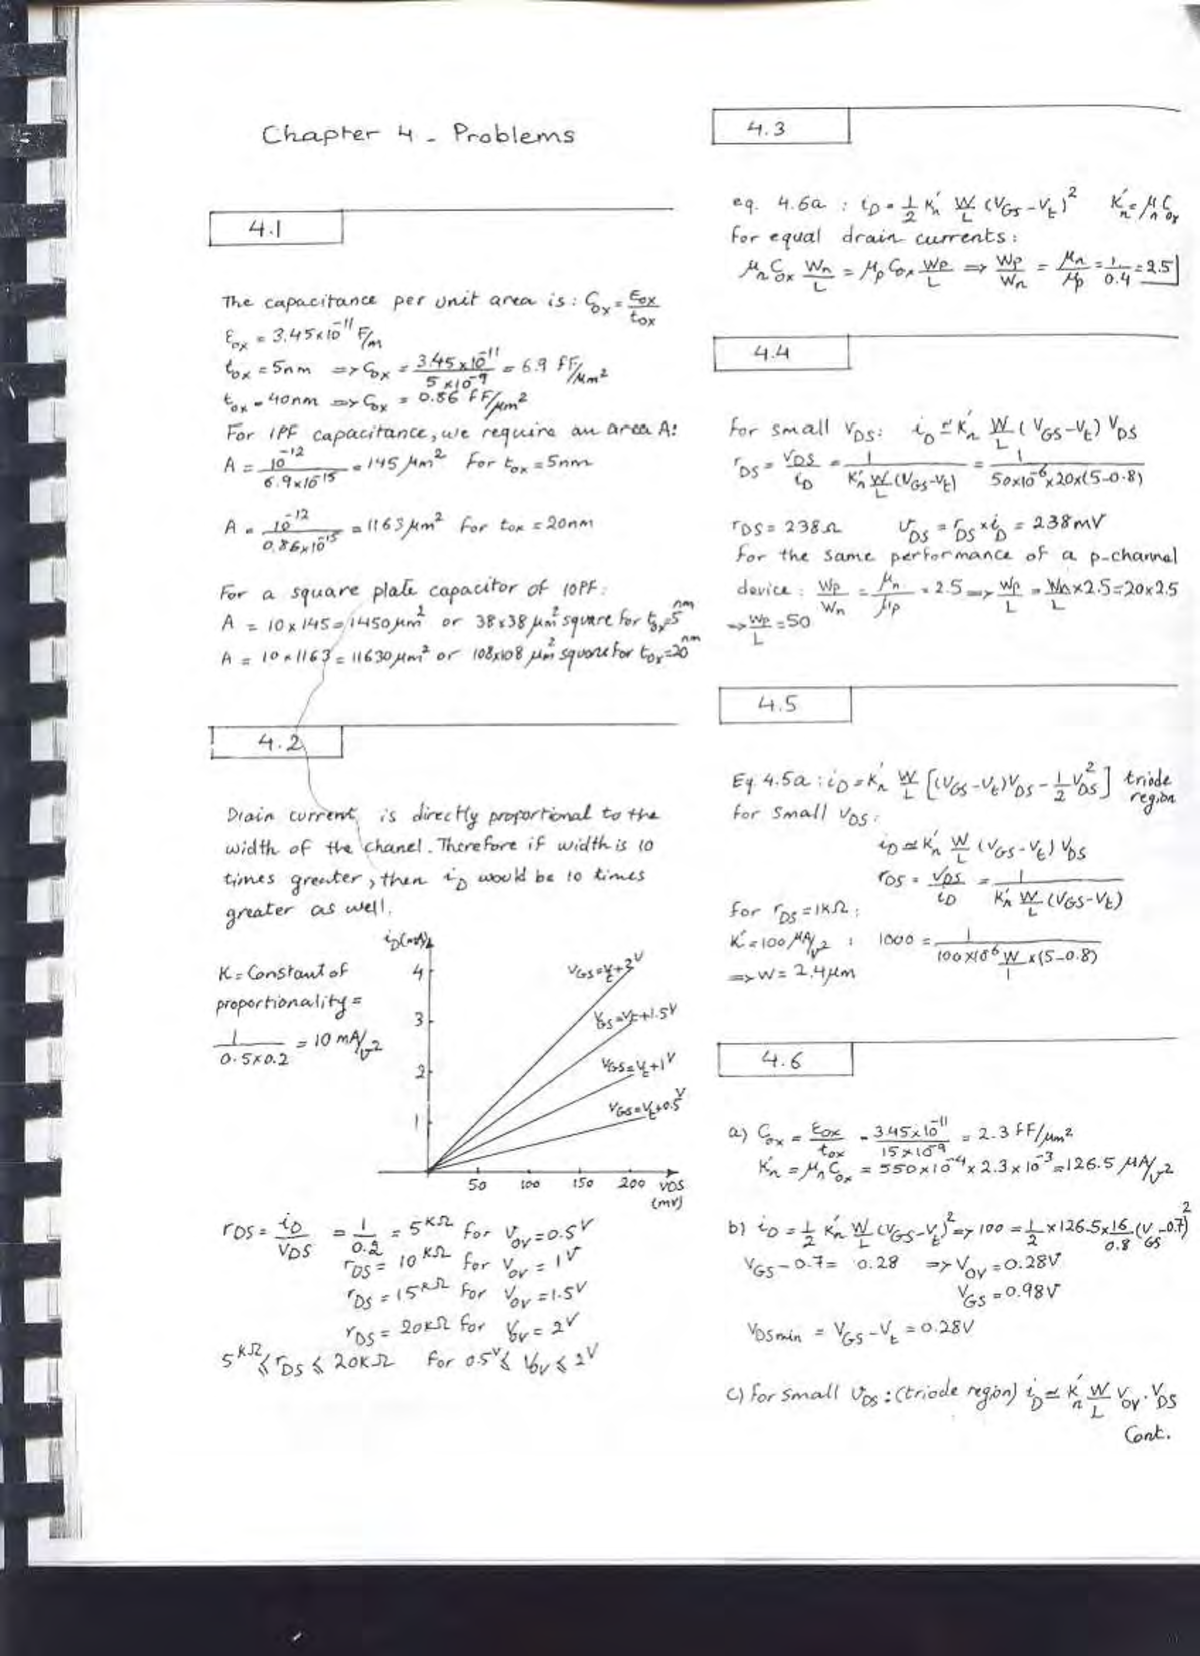 Chapter 4 - Problems
4.1
The capacitance per unit area is: Cox = εox/tox
εox = 3.45x10^-11 F/m
tox = 5nm => Cox = 3.45x10^-11 / 5x10^-9 = 6.9 fF/μm²
tox = 40nm => Cox = 0.86 fF/μm²
For 1PF capacitance, we require an area A:
A = 10^-12 / 6.9x10^-15 = 145 μm² for tox = 5nm
A = 10^-12 / 0.86x10^-15 = 1163 μm² for tox = 20nm
For a square plate capacitor of 10PF:
A = 10x145 = 1450 μm² or 38x38 μm² square for tox=5nm
A = 10x1163 = 11630 μm² or 108x108 μm² square for tox=20nm
4.2
Drain current is directly proportional to the
width of the chanel. Therefore if width is 10
times greater, then iD would be 10 times
greater as well.
K = Constant of
proportionality =
1 / 0.5x0.2 = 10 mA/V²
iD(mA)
4
3
2
1
VGS=Vt+2V
VGS=Vt+1.5V
VGS=Vt+1V
VGS=Vt+0.5V
50 100 150 200 vDS
(mV)
rDS = iD/VDS = 1/0.2 = 5KΩ for VOV = 0.5V
rDS = 10KΩ for VOV = 1V
rDS = 15KΩ for VOV = 1.5V
rDS = 20KΩ for VOV = 2V
5KΩ ≤ rDS ≤ 20KΩ for 0.5V ≤ VOV ≤ 2V
4.3
eq. 4.6a : iD = 1/2 K'n W/L (VGS-Vt)² K'n = μnCox
for equal drain currents:
μnCox Wn/L = μpCox Wp/L => Wp/Wn = μn/μp = 1/0.4 = 2.5
4.4
for small VDS: iD ≃ K'n W/L (VGS-Vt) VDS
rDS = VDS/iD = 1 / K'n W/L (VGS-Vt) = 1 / 50x10^-6 x20x(5-0.8)
rDS = 238Ω vDS = rDS x iD = 238mV
for the same performance of a p-channel
device : Wp/Wn = μn/μp = 2.5 => Wp/L = Wn/L x2.5 = 20x2.5
=> Wp/L = 50
4.5
Eq 4.5a : iD = K'n W/L [(VGS-Vt)VDS - 1/2 VDS²] triode region
for small VDS:
iD ≃ K'n W/L (VGS-Vt) VDS
rDS = VDS/iD = 1 / K'n W/L (VGS-Vt)
for rDS = 1KΩ :
K' = 100 μA/V² : 1000 = 1 / 100x10^-6 W/1 x(5-0.8)
=> W = 2.4μm
4.6
a) Cox = εox/tox = 3.45x10^-11 / 15x10^-9 = 2.3 fF/μm²
K'n = μnCox = 550x10^-4 x 2.3x10^-3 = 126.5 μA/V²
b) iD = 1/2 K'n W/L (VGS-Vt)² => 100 = 1/2 x126.5x 16/0.8 (VGS-0.7)²
VGS - 0.7 = 0.28 => VOV = 0.28V
VGS = 0.98V
VDSmin = VGS - Vt = 0.28V
c) for small VDS: (triode region) iD ≃ K'n W/L VOV.VDS
Cont.